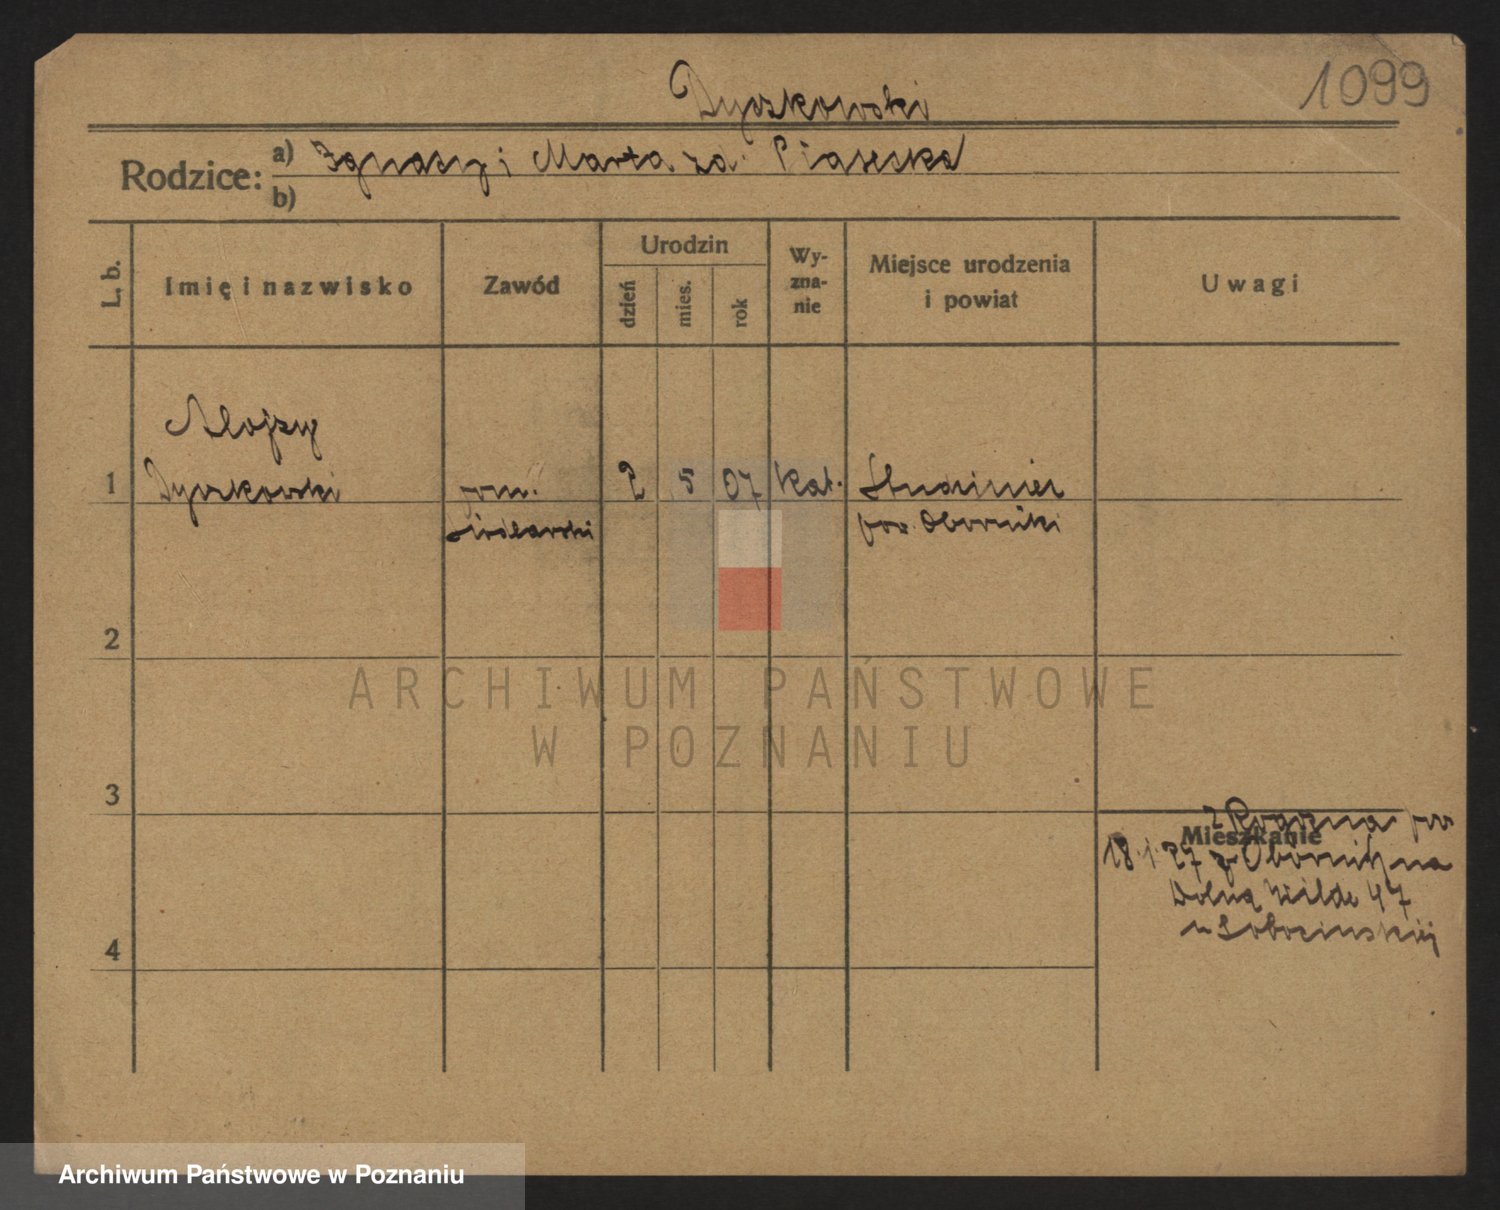 Dyszkowski
1099
Rodzice:
a) Ignacy i Marta zd. Piasecka
b)
L. b.
Imię i nazwisko
Zawód
Urodzin
dzień
mies.
rok
Wy-
zna-
nie
Miejsce urodzenia
i powiat
Uwagi
Alojzy
1 Dyszkowski 2 5 07 kat.
siodlarski
pow. Oborniki
2
3
4
Mieszkanie
z Rogoźna pow
18.1.27 z Obornik na
Dolna Wilda 47
ARCHIWUM PAŃSTWOWE
W POZNANIU
Archiwum Państwowe w Poznaniu